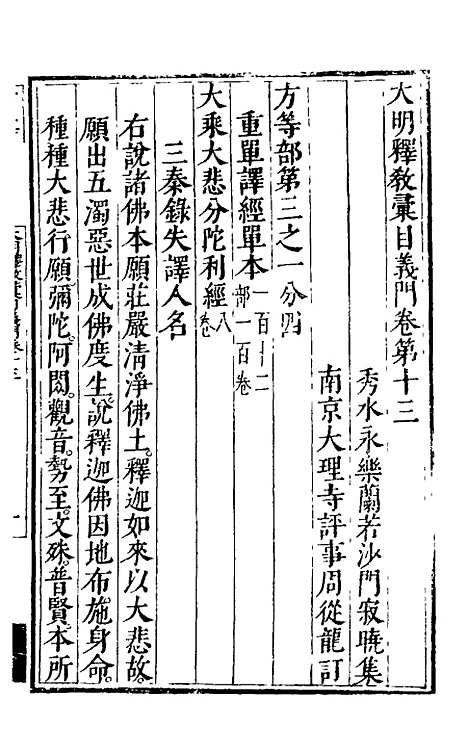 大明釋敎彙目義門卷第十三
秀水永樂蘭若沙門寂曉集
南京大理寺評事周從龍訂
方等部第三之一分四
重單譯經單本一百十二部一百卷
大乘大悲分陀利經八卷
三秦錄失譯人名
右說諸佛本願莊嚴清淨佛土。釋迦如來以大悲故。
願出五濁惡世成佛度生。說釋迦佛因地布施身命。
種種大悲行願。彌陀。阿閦。觀音。勢至。文殊。普賢。本所